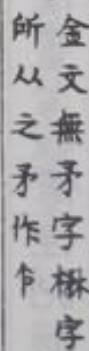 金文無矛字楙字
所从之矛作𠂇